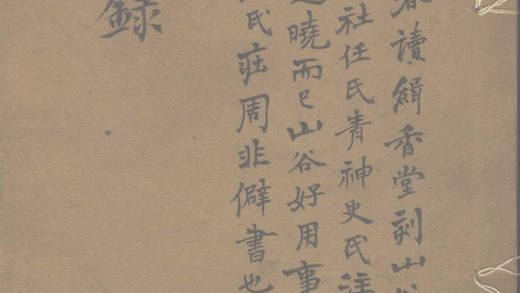 讀緝香堂刻山
社任氏青神史氏注
曉而已山谷好用事
氏莊周非僻書也
錄